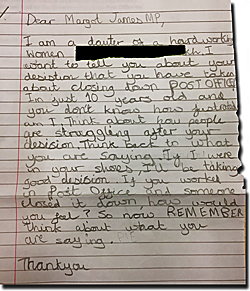 Dear Margot James MP,
I am a dauter of a hard working
women
want to tell you about your
desistion that you have taken
about closing down POST OFFICE
I'm just 10 years old and
you don't know how frustrated
am I. Think about how people
are struggling after your
decision. Think back in what
you are saying. If I were
in your shoes I'll be taking
good decision. If you worked
in Post Office and someone
closed it down how would
you feel? So now REMEMBER
think about what you
are saying.
Thankyou